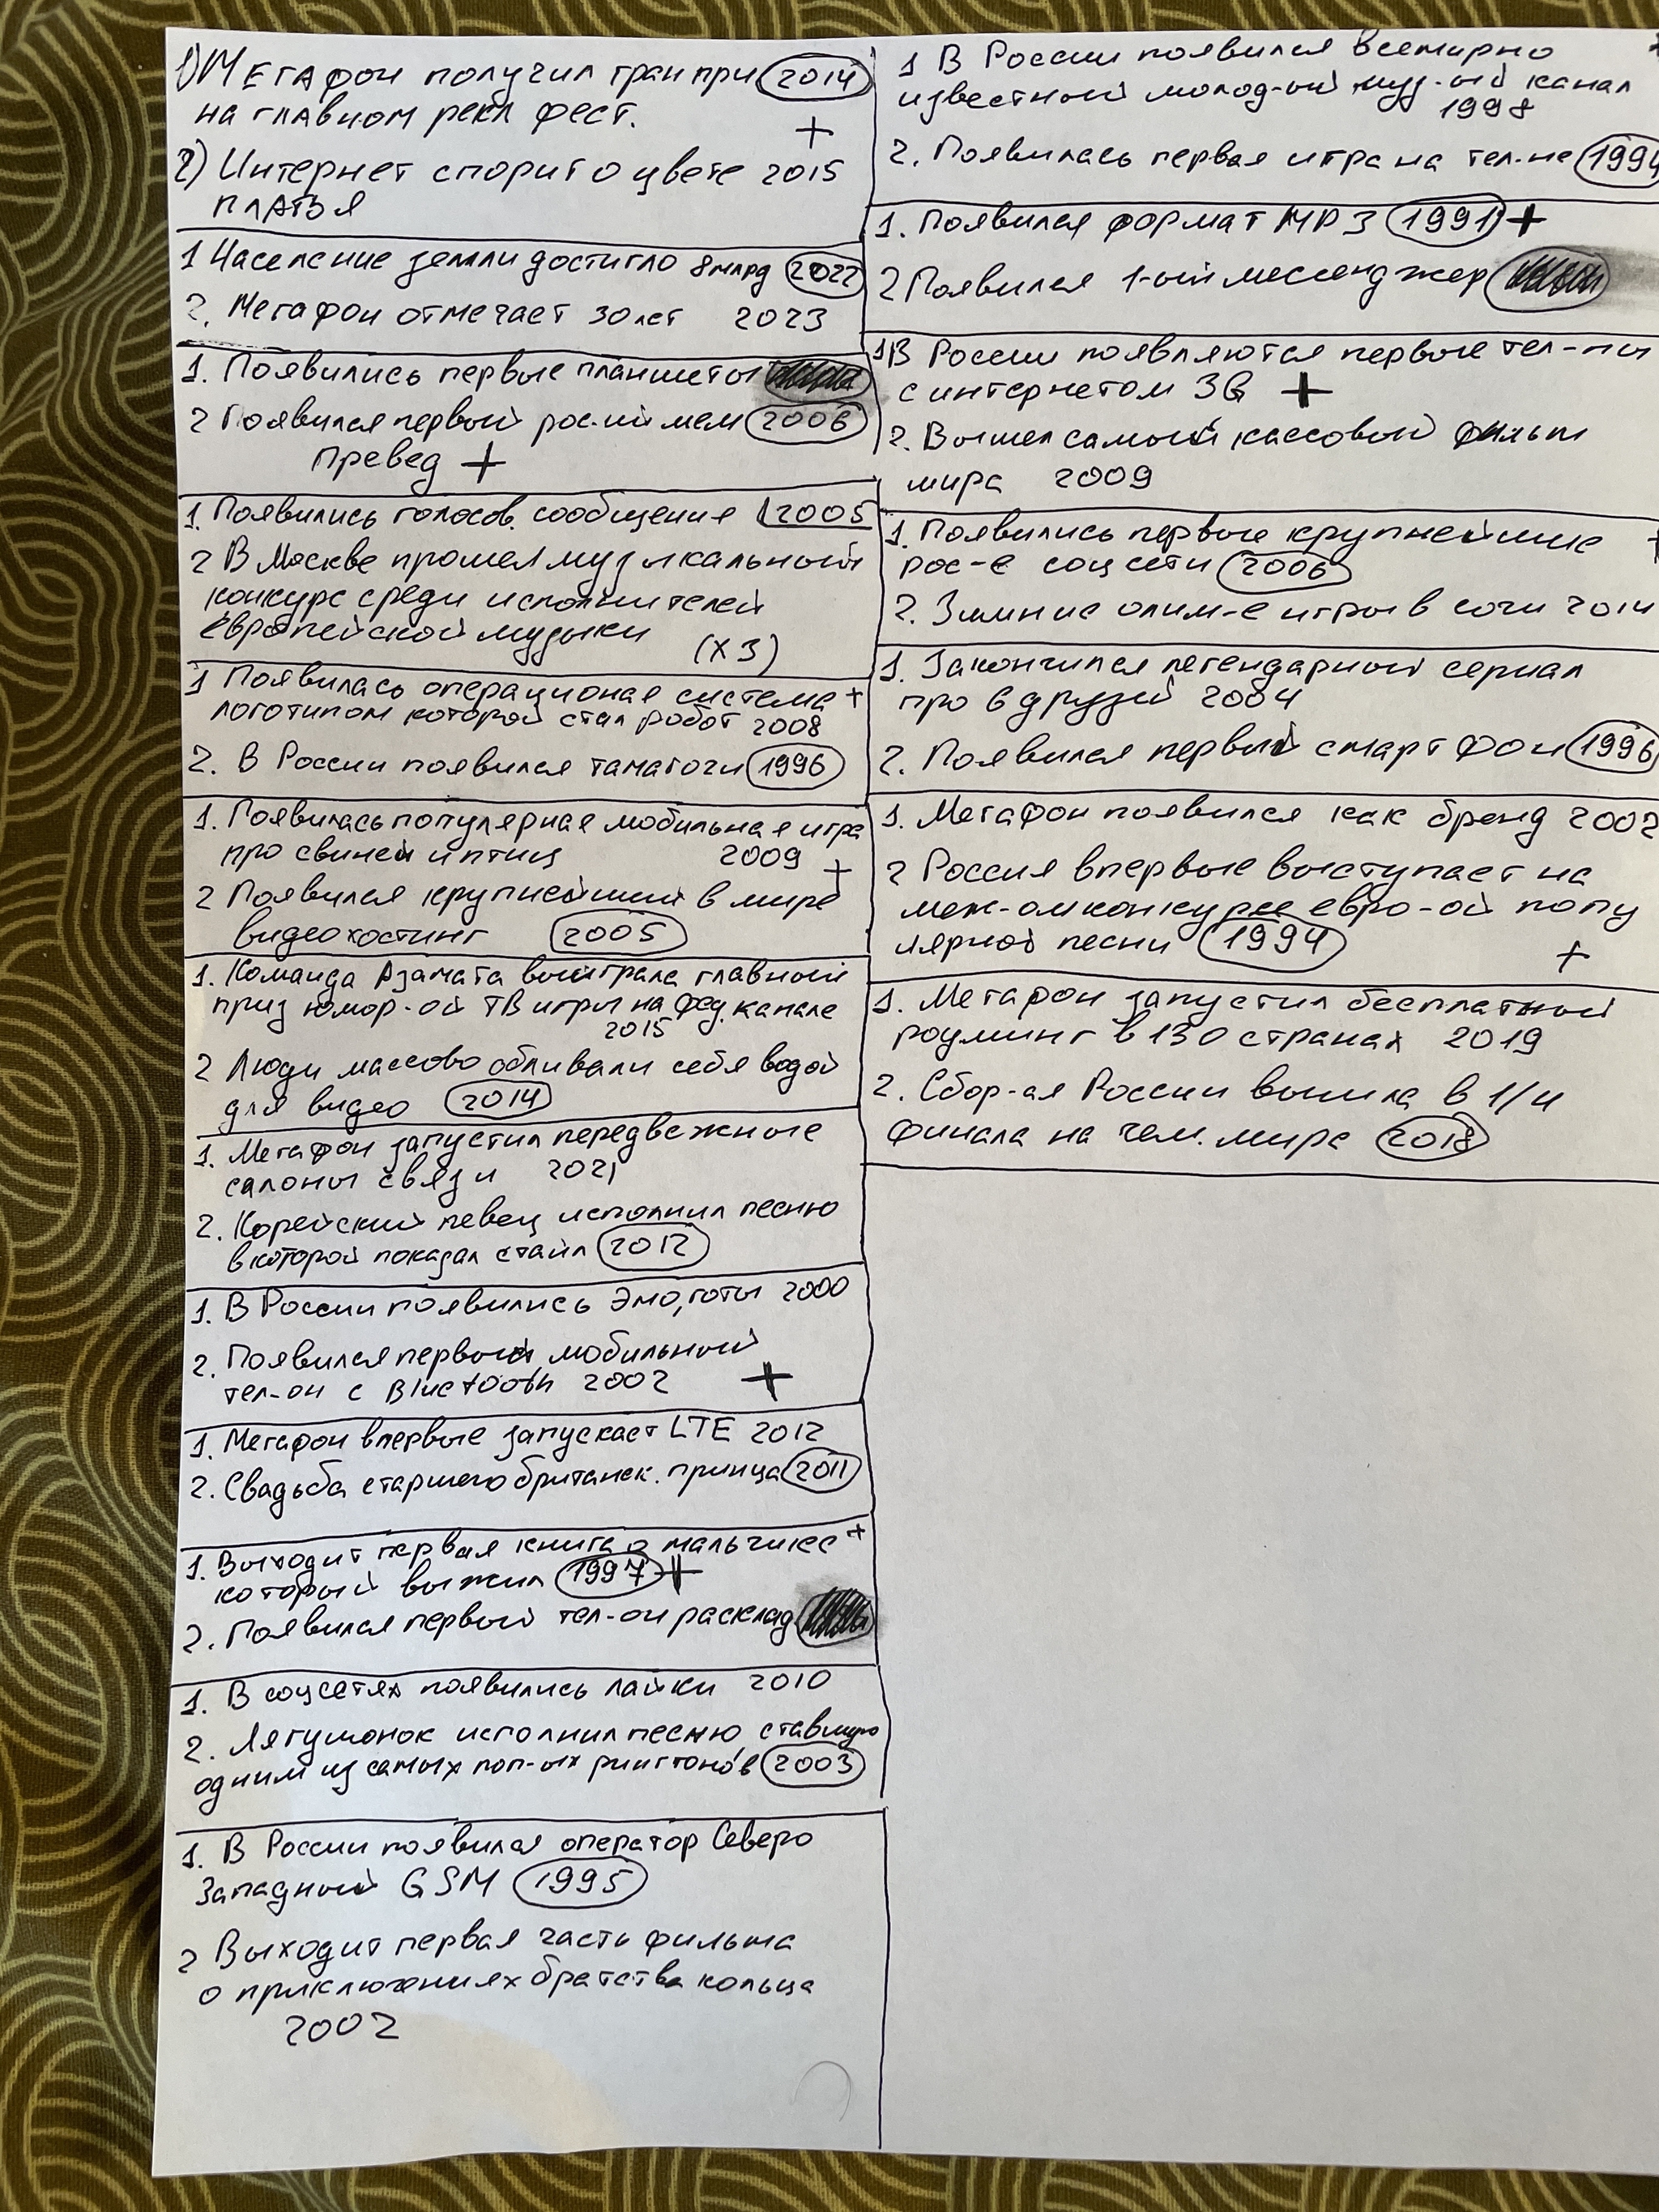 1) Мегафон получил гран при 2014
на главном рекл фест. +
2) Интернет спорит о цвете 2015
платья
1 Население земли достигло 8 млрд 2022
2. Мегафон отмечает 30 лет 2023
1. Появились первые планшеты
2 Появился первый рос-ий мем 2006
Превед +
1. Появились голосов. сообщения 2005
2 В Москве прошел музыкальный
конкурс среди исполнителей
европейской музыки (х3)
1 Появилась операционая система +
логотипом которой стал робот 2008
2. В России появился тамагочи 1996
1. Появилась популярная мобильная игра
про свиней и птиц 2009 +
2 Появился крупнейший в мире
видеохостинг 2005
1. Команда Азамата выиграла главный
приз юмор-ой ТВ игры на фед. канале
2015
2 Люди массово обливали себя водой
для видео 2014
1. Мегафон запустил передвежные
салоны связи 2021
2. Корейский певец исполнил песню
в которой показал стайл 2012
1. В России появились Эмо, готы 2000
2. Появился первый мобильный
тел-он с Bluetooth 2002 +
1. Мегафон впервые запускает LTE 2012
2. Свадьба старшего британск. принца 2011
1. Выходит первая книга о мальчике +
который выжил 1997 +
2. Появился первый тел-он расклад
1. В соцсетях появились лайки 2010
2. Лягушонок исполнил песню ставшую
одним из самых поп-ых рингтонов 2003
1. В России появился оператор Северо
Западный GSM 1995
2 Выходит первая часть фильма
о приключениях братства кольца
2002
1 В России появился всемирно
известный молод-ый муз-ый канал
1998
2. Появилась первая игра на тел-не 1994
1. Появился формат MP3 1991 +
2 Появился 1-ый мессенджер
1 В России появляются первые тел-ны
с интернетом 3G +
2. Вышел самый кассовый фильм
мира 2009
1. Появились первые крупнейшие +
рос-е соц сети 2006
2. Зимние олим-е игры в сочи 2014
1. Закончился легендарный сериал
про 6 друзей 2004
2. Появился первый смартфон 1996
1. Мегафон появился как бренд 2002
2 Россия впервые выступает на
меж-ом конкурсе евро-ой попу
лярной песни 1994 +
1. Мегафон запустил бесплатный
роуминг в 130 странах 2019
2. Сбор-ая России вышла в 1/4
финала на чем. мире 2018